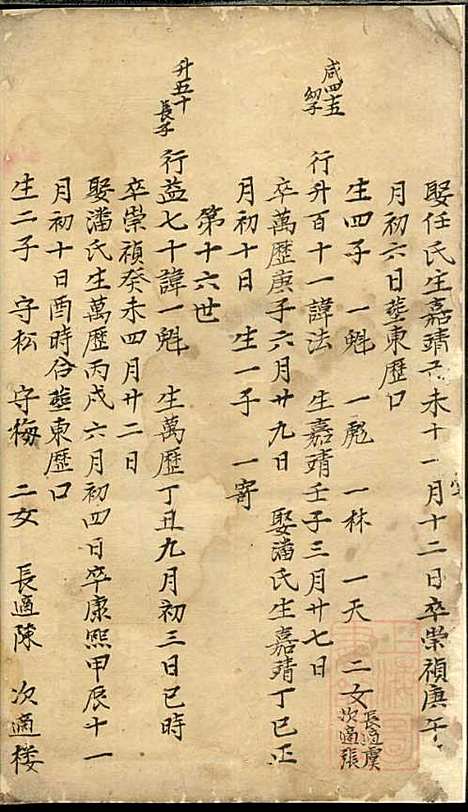 娶任氏生嘉靖己未十一月十二日卒崇禎庚午
月初六日葬東歷口
生四子　一魁　一彪　一林　一天　二女 長適虞 次適張
咸四十五
幼子
行升百十一諱法　生嘉靖壬子三月廿七日
卒萬歷庚子六月廿九日　娶潘氏生嘉靖丁巳正
月初十日　生一子　一寄
第十六世
升五十
長子
行益七十諱一魁　生萬歷丁丑九月初三日巳時
卒崇禎癸未四月廿二日
娶潘氏生萬歷丙戌六月初四日卒康熙甲辰十一
月初十日酉時合葬東歷口
生二子　守松　守梅　二女　長適陳　次適楼